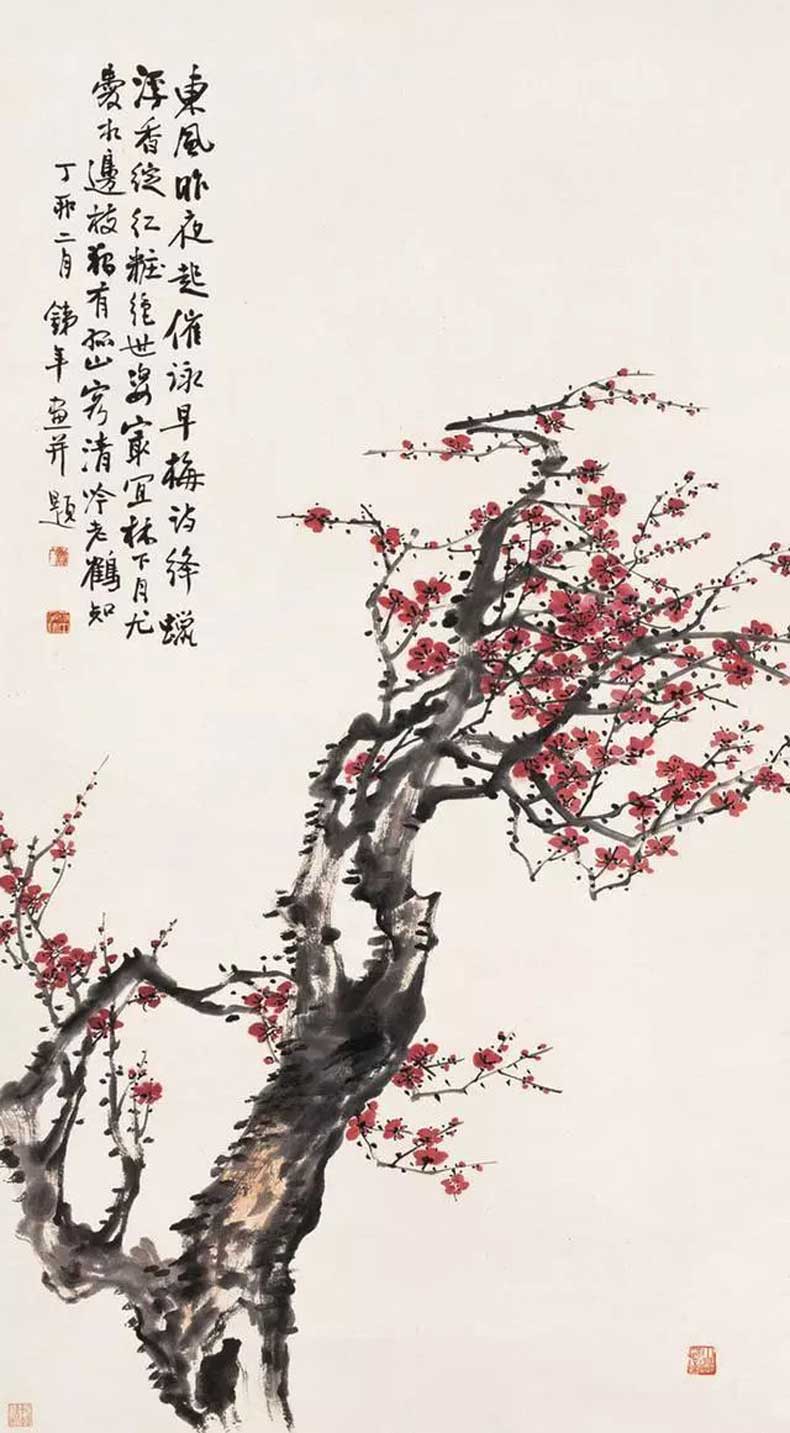 東風昨夜起催詠早梅詩絳蠟
浮香綻紅粧絕世姿最宜林下月尤
愛水邊枝獨有孤山客清吟老鶴知
丁卯二月 銕年畫并題